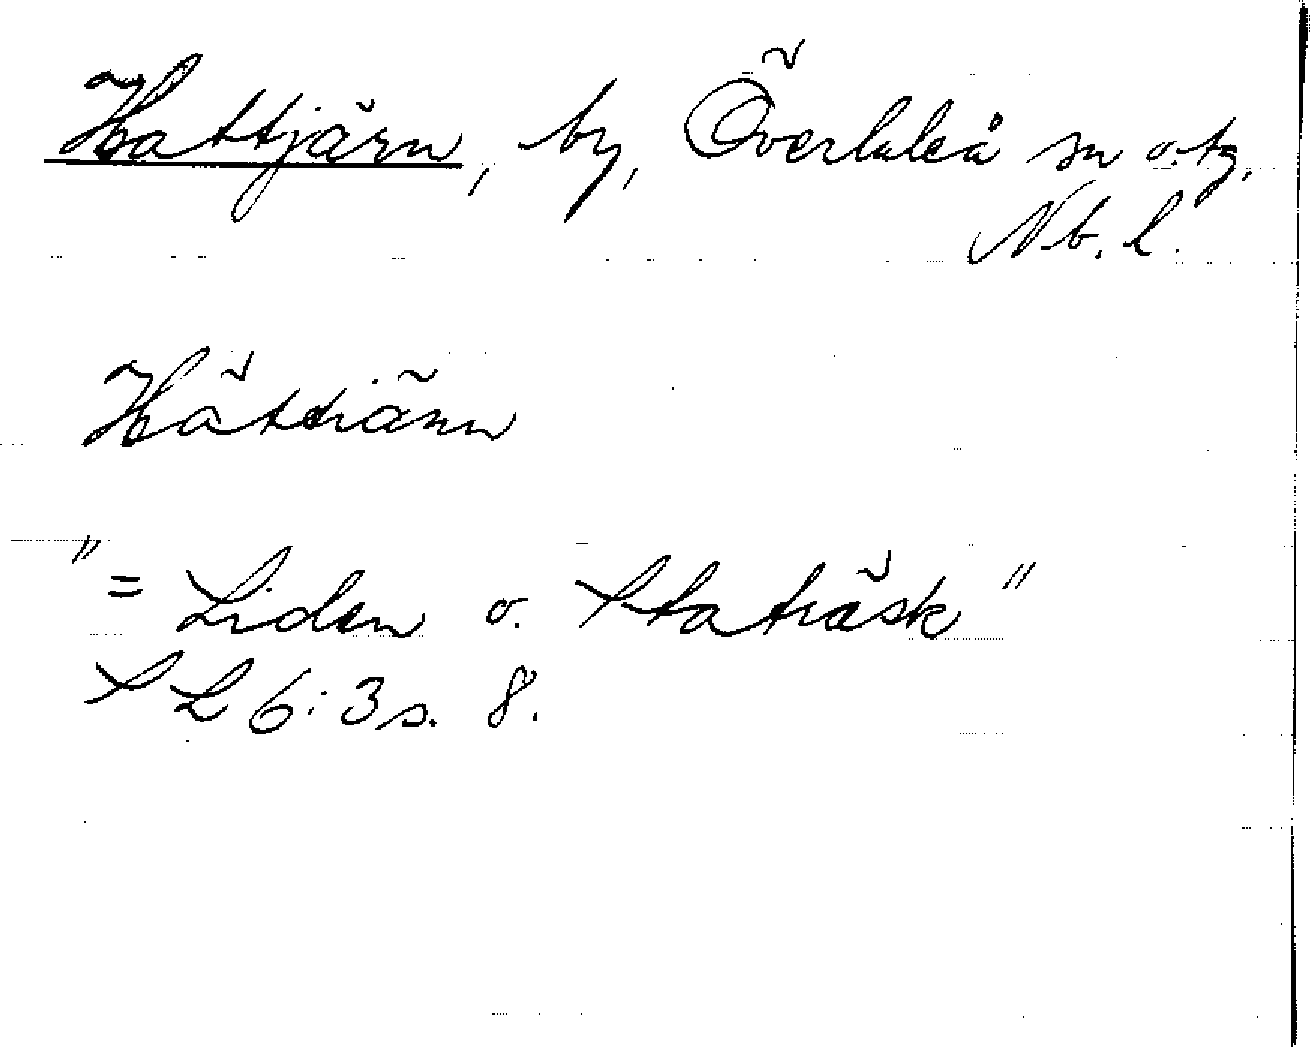 Hattjärn, by, Överluleå sn o. tg,
Nb. l.
Hättiänn
"= Liden o. Staträsk"
SL 6:3 s. 8.